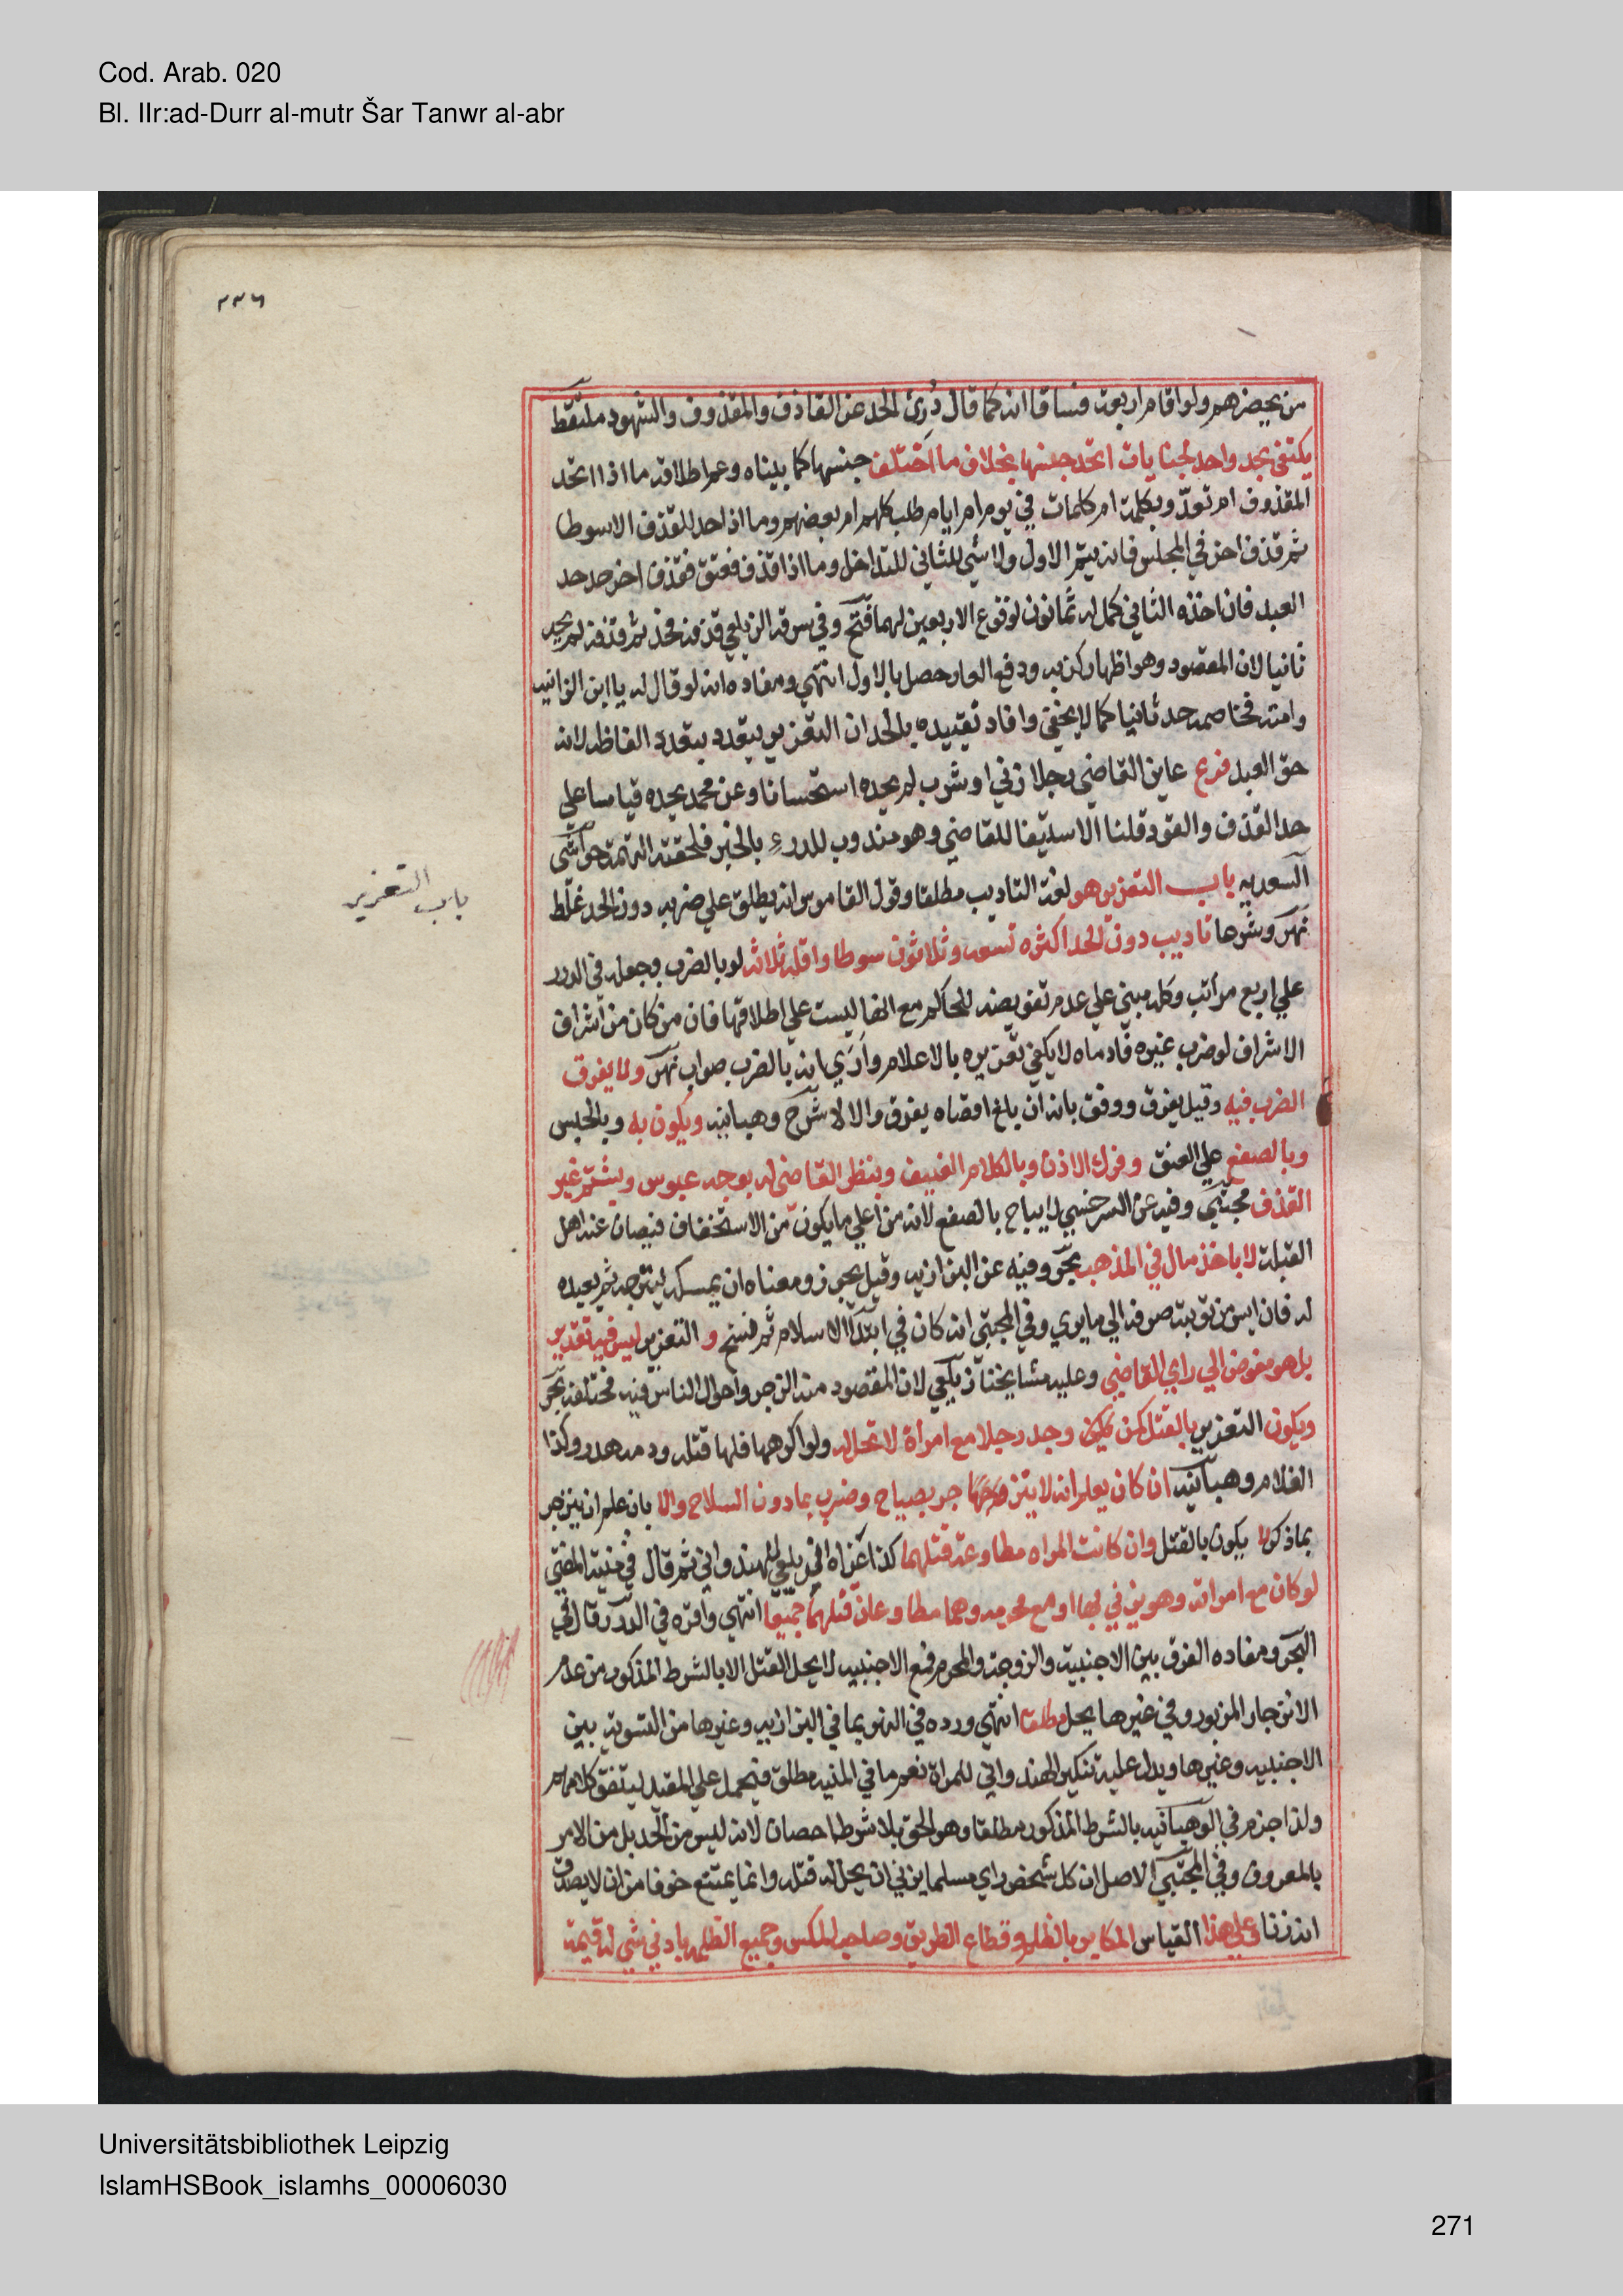 Cod. Arab. 020
Bl. IIr:ad-Durr al-mutr Šar Tanwr al-abr
٢٣٦
من يحضرهم ولو اقام اربعة فساقا انه كما قال دُرئ الحد عن القاذف والمقذوف والشهود ملتقط
يكتفي بحد واحد لجنايات اتحد جنسها بخلاف ما اختلف جنسها كما بيناه وعم اطلاقه ما اذا اتحد
المقذوف ام تعدّد وبكلمة ام كلمات في يوم ام ايام طلب كلهم ام بعضهم وما اذا حد للقذف الا سوطا
ثم قذف اخر في المجلس فانه يتم الاول ولا شي للثاني للتداخل وما اذا قذف فعتق فقذف اخر حد حد
العبد فان اخذه الثاني كمل له ثمانون لوقوع الاربعين لهما فتح وفي سرقة الزيلعي قذفه فحد ثم قذفه لم يحد
ثانيا لان المقصود وهو اظهار كذبه ودفع العار حصل بالاول انتهي ومفاده انه لو قال له يا ابن الزانية
وامته فخاصمه حد ثانيا كما لا يخفي وافاد تقييده بالحد ان التعزير يتعدد بتعدد الفاظه لانه
حق العبد فرع عاين القاضي رجلا زني او شرب لم يحده استحسانا وعن محمد يحده قياسا علي
حد القذف والقود قلنا الاستيفا للقاضي وهو مندوب للدرء بالخبر فلحقته التهمة حواشي
السعديه باب التعزير هو لغة التاديب مطلقا وقول القاموس انه يطلق علي ضربه دون الحد غلط
نهر وشرعا تاديب دون الحد اكثره تسعه وثلاثون سوطا واقله ثلاثه لو بالضرب وجعله في الدرر
علي اربع مراتب وكله مبني علي عدم تفويضه للحاكم مع انها ليست علي اطلاقها فان من كان من اشراف
الاشراف لو ضرب غيره فادماه لا يكفي تعزيره بالاعلام وارَي انه بالضرب صواب نهر ولا يفرق
الضرب فيه وقيل يفرق ووفق بانه ان بلغ اقصاه يفرق والا لا شرح وهبانيه ويكون به وبالحبس
وبالصفع علي العنق وفرك الاذن وبالكلام العنيف وبنظر القاضي له بوجه عبوس ويشتم غير
القذف مجتبي وفيه عن السرخسي لا يباح بالصفع لانه من اعلي ما يكون من الاستخفاف فيصان عنه اهل
القبلة لا باخذ مال في المذهب بحر وفيه عن البزازيه وقيل يجوز ومعناه ان يمسكه لينزجر ثم يعيده
له فان ايس من توبته صرفه الي ما يري وفي المجتبي انه كان في ابتدا الاسلام ثم نسخ و التعزير ليس فيه تقدير
بل هو مفوض الي راي القاضي وعليه مشايخنا زيلعي لان المقصود منه الزجر واحوال الناس فيه مختلفة بحر
ويكون التعزير بالقتل كمن وجد رجلا مع امراة لا تحل له ولو اكرهها فلها قتله ودمه هدر وكذا
الغلام وهبانيه ان كان يعلم انه لا ينزجر بصياح وضرب بما دون السلاح والا بان علم انه ينزجر
بما ذكر لا يكون بالقتل وان كانت المراه مطاوعة قتلهما كذا عزاه الزيلعي للهندواني ثم قال في منية المفتي
لو كان مع امراته وهو يزني بها او مع محرمه وهما مطاوعان قتلهما جميعا انتهي واقره في الدرر وقال في
البحر ومفاده الفرق بين الاجنبيه والزوجة والمحرم فمع الاجنبيه لا يحل القتل الا بالشرط المذكور من عدم
الانزجار المزبور وفي غيرها يحل مطلقا انتهي ورده في النهر بما في البزازيه وغيرها من التسوية بين
الاجنبيه وغيرها ويدل عليه تنكير الهندواني للمراة نعم ما في المنيه مطلق فيحمل علي المقيد ليتفق كلامهم
ولذا جزم في الوهبانيه بالشرط المذكور مطلقا وهو الحق بلا شرط احصان لانه ليس من الحد بل من الامر
بالمعروف وفي المجتبي الاصل ان كل شخص راي مسلما يزني ان يحل له قتله وانما يمتنع خوفا من ان لا يصدق
انه زنا وعلي هذا القياس المكابر بالظلم وقطاع الطريق وصاحب المكس وجميع الظلمه بادني شي له قيمة
باب التعزير
Universitätsbibliothek Leipzig
IslamHSBook_islamhs_00006030
271